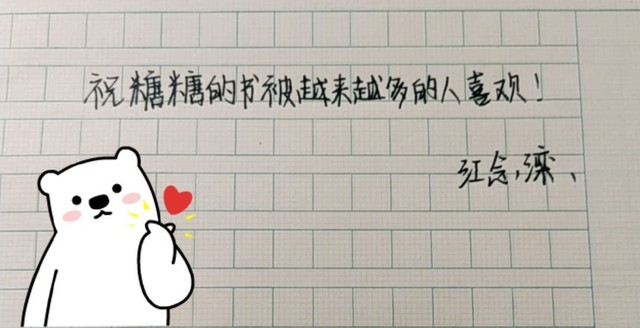 祝糖糖的书被越来越多的人喜欢！
江念,滦、